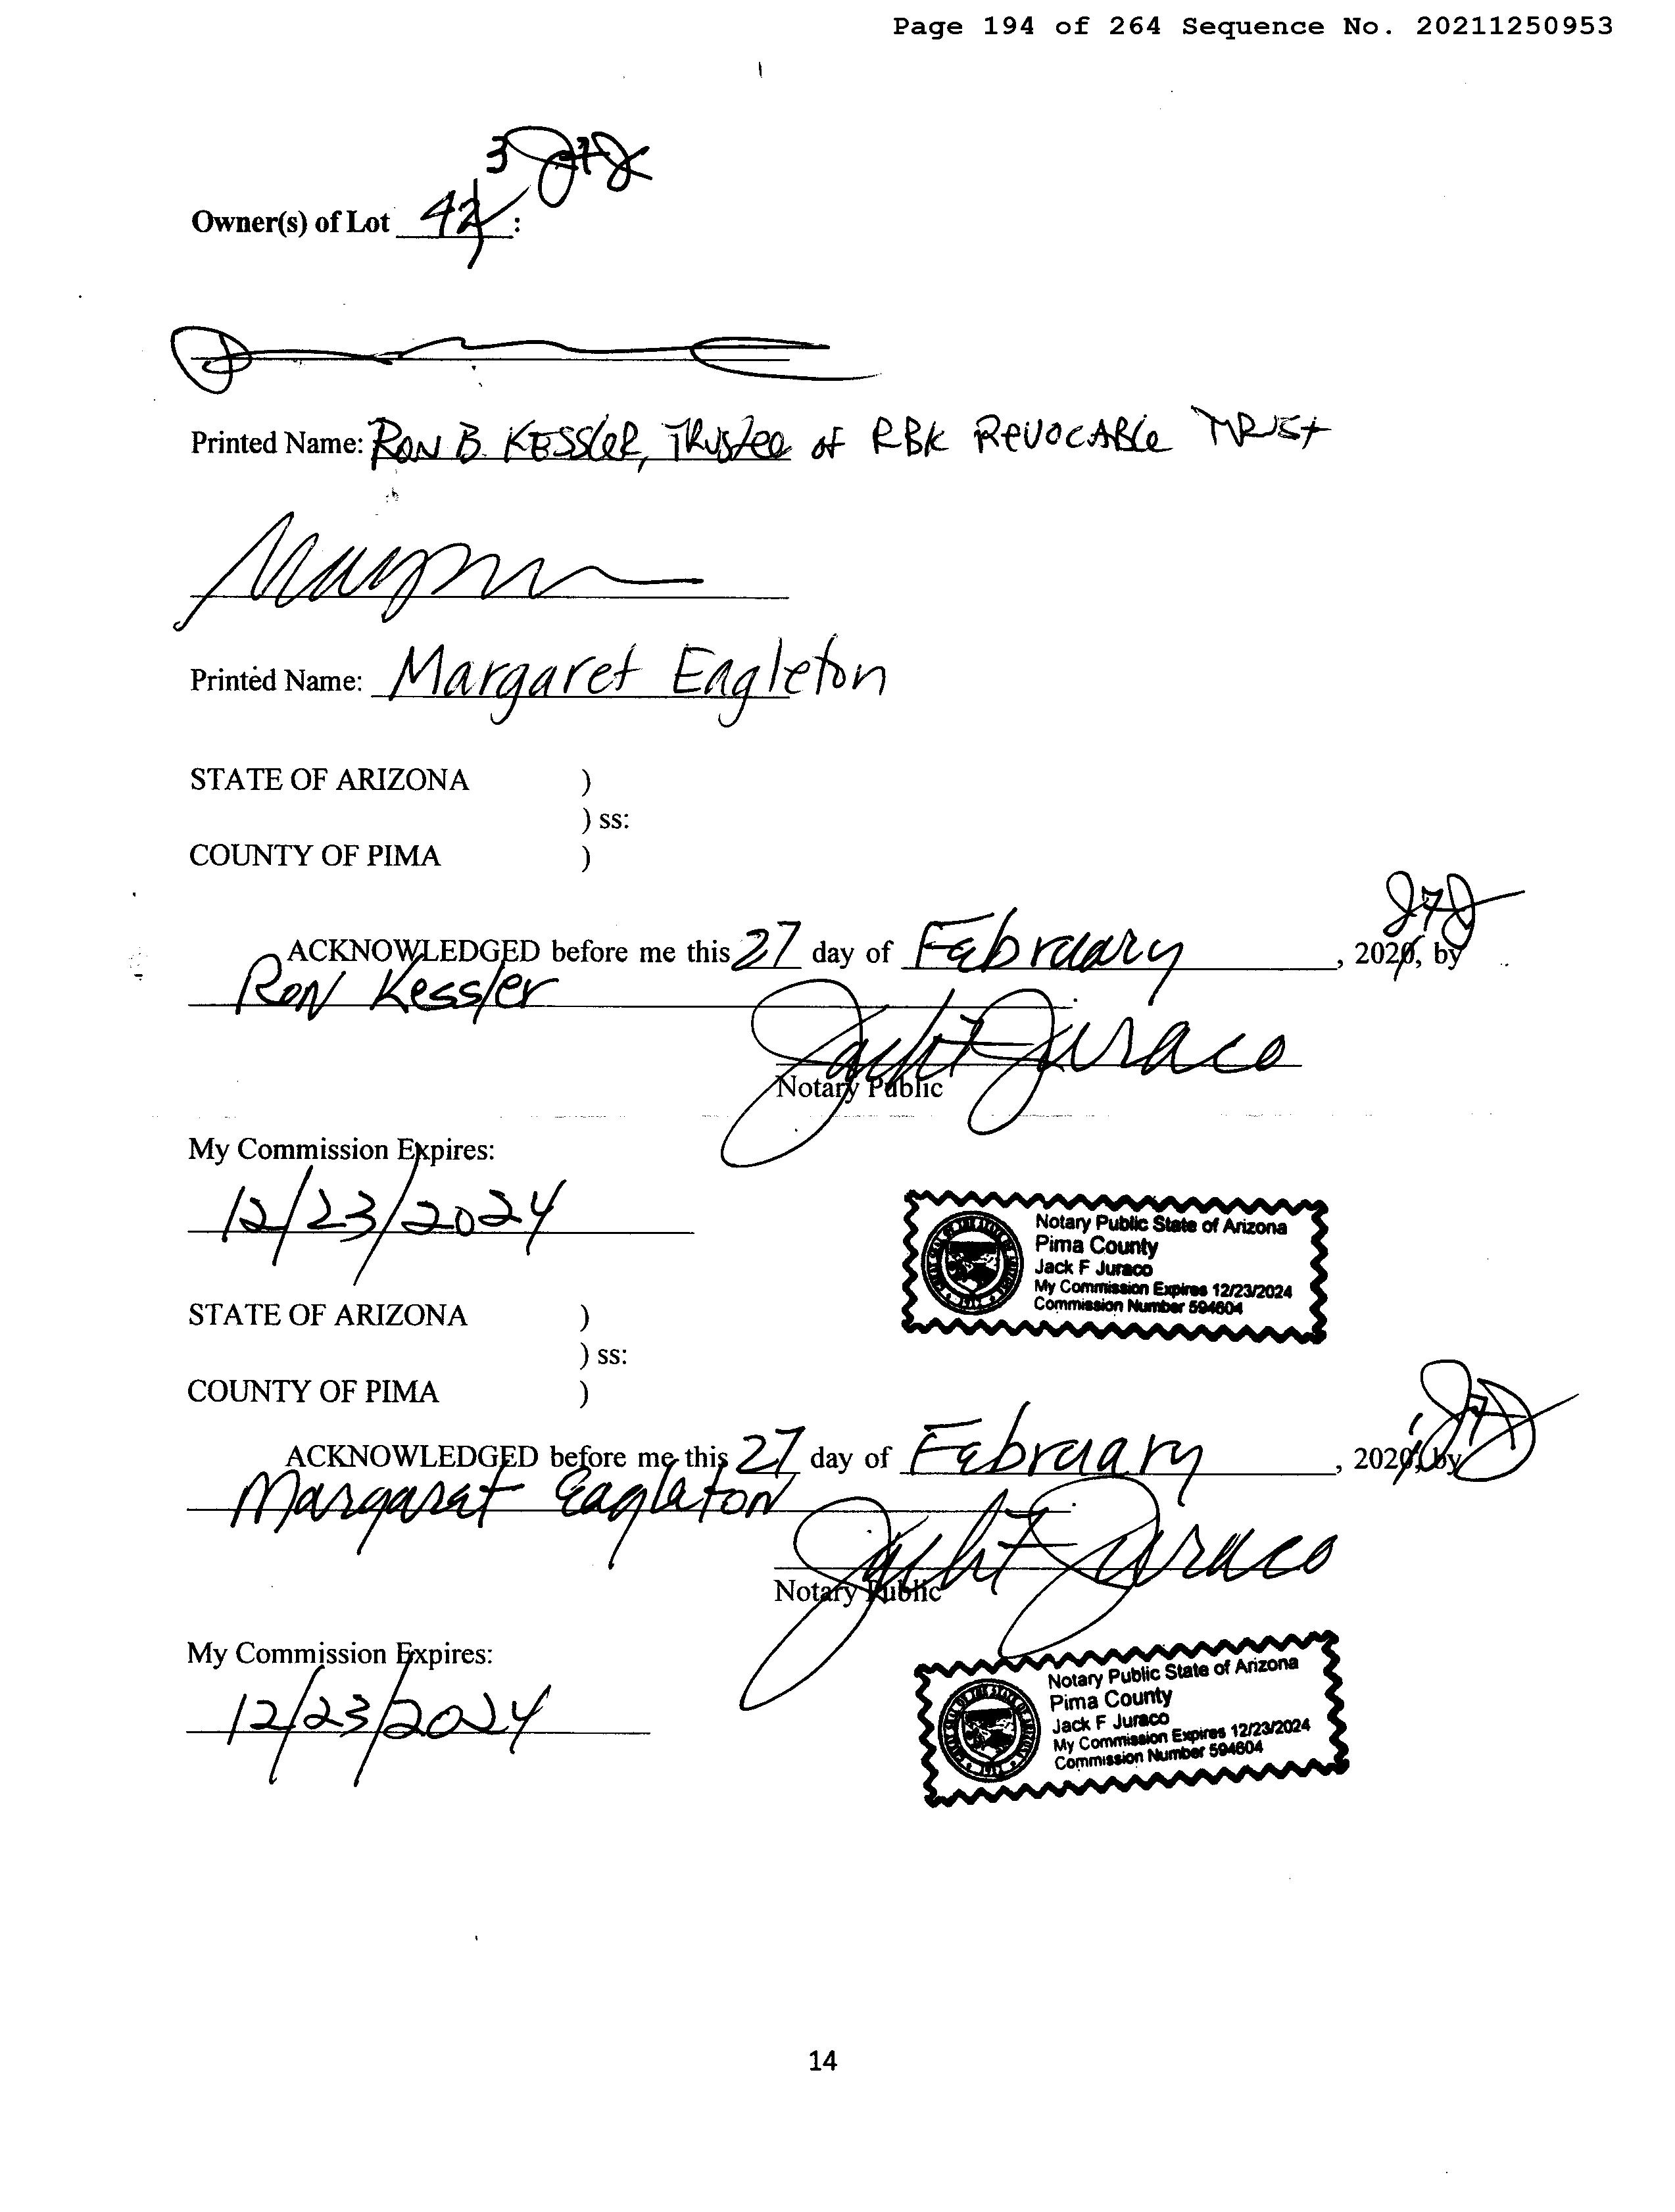 Page 194 of 264 Sequence No. 20211250953
3 JFJ
Owner(s) of Lot 42 :
Printed Name: RON B. KESSleR, TRUStee of RBK RevocABle TRUSt
Printed Name: Margaret Eagleton
STATE OF ARIZONA )
) ss:
COUNTY OF PIMA )
JFJ
ACKNOWLEDGED before me this 27 day of February , 2020, by
Ron Kessler
Jack F Juraco
Notary Public
My Commission Expires:
12/23/2024
Notary Public State of Arizona
Pima County
Jack F Juraco
My Commission Expires 12/23/2024
Commission Number 594604
STATE OF ARIZONA )
) ss:
COUNTY OF PIMA )
JFJ
ACKNOWLEDGED before me this 27 day of February , 2020, by
Margaret Eagleton
Jack F Juraco
Notary Public
My Commission Expires:
12/23/2024
Notary Public State of Arizona
Pima County
Jack F Juraco
My Commission Expires 12/23/2024
Commission Number 594604
14